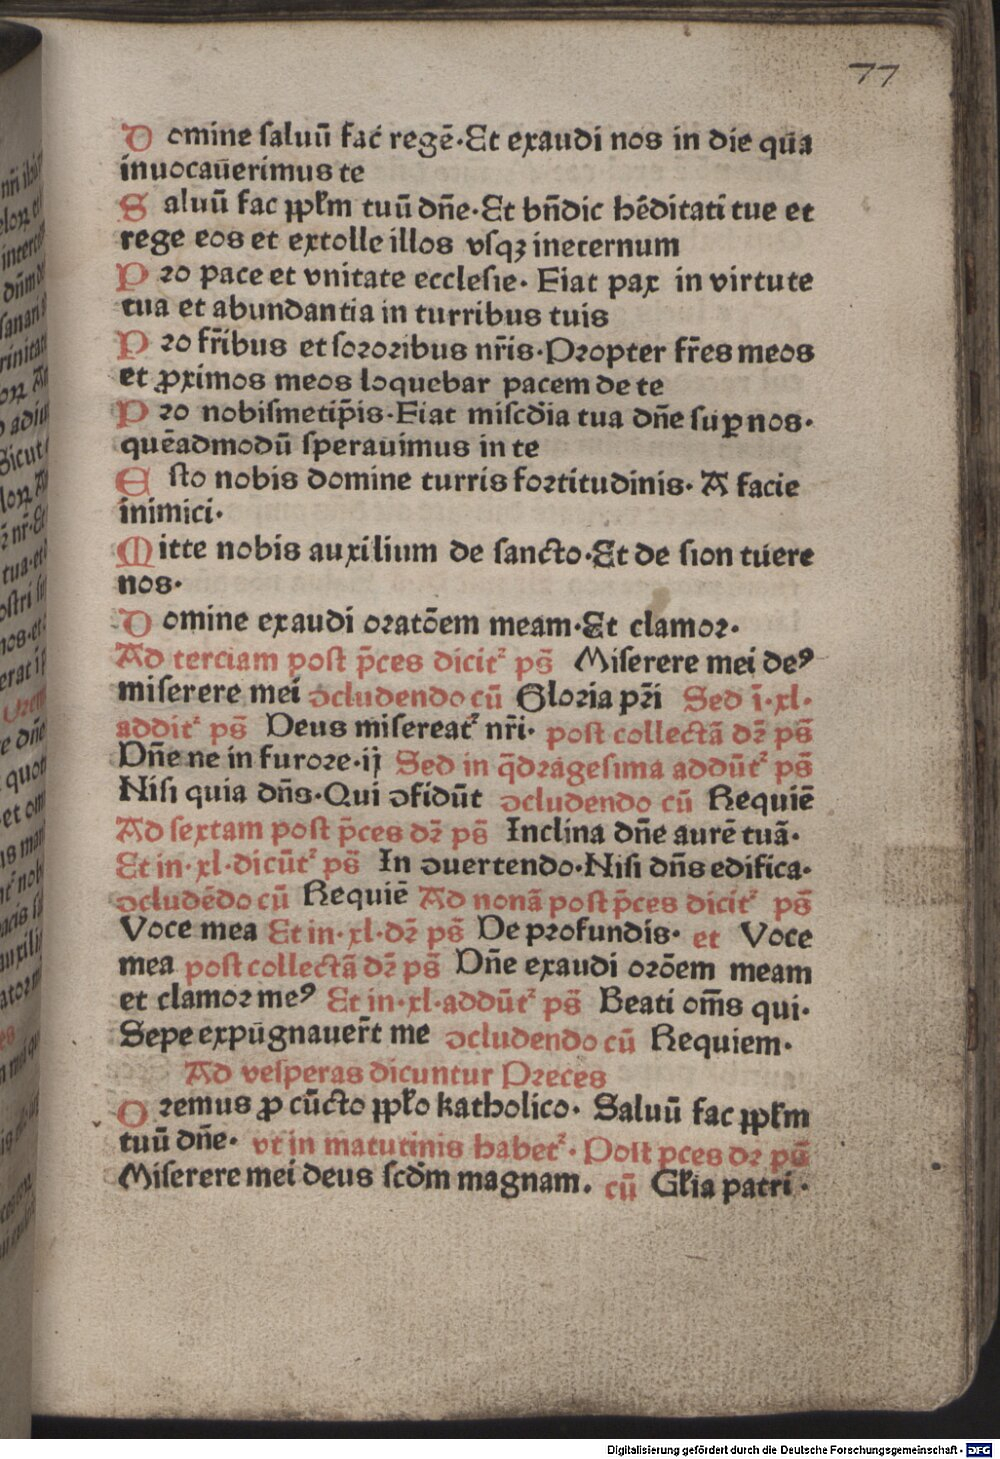 77
Domine saluū fac regē·Et exaudi nos in die qua
inuocauerimus te
Saluū fac ppłm tuū dñe·Et bñdic hēditati tue et
rege eos et extolle illos vsqꝫ ineternum
Pro pace et vnitate ecclesie· Fiat pax in virtute
tua et abundantia in turribus tuis
Pro fr̄ibus et sororibus nr̄is·Propter fr̄es meos
et ꝓximos meos loquebar pacem de te
Pro nobismetip̄is·Fiat misc̄dia tua dñe suꝑ nos·
quēadmodū sperauimus in te
Esto nobis domine turris fortitudinis· A facie
inimici·
Mitte nobis auxilium de sancto·Et de sion tuere
nos·
Domine exaudi oratōem meam·Et clamor·
Ad terciam post p̄ces dicit᷑ ps̄ Miserere mei deꝰ
miserere mei ↄcludendo cū Gloria pr̄i Sed ī·xl·
addit᷑ ps̄ Deus misereat᷑ nr̄i· post collectā dr̄ ps̄
Dñe ne in furore·ij Sed in q̄dragesima addūt᷑ ps̄
Nisi quia dñs·Qui ↄfidūt ↄcludendo cū Requiē
Ad sextam post p̄ces dr̄ ps̄ Inclina dñe aurē tuā·
Et in·xl·dicūt᷑ ps̄ In ↄuertendo·Nisi dñs edifica·
ↄcludēdo cū Requiē Ad nonā post p̄ces dicit᷑ ps̄
Voce mea Et in·xl·dr̄ ps̄ De profundis· et Voce
mea post collectā dr̄ ps̄ Dñe exaudi orōem meam
et clamor meꝰ Et in·xl·addūt᷑ ps̄ Beati om̄s qui·
Sepe expugnauer̄t me ↄcludendo cū Requiem·
Ad vesperas dicuntur Preces
Oremus ꝓ cūcto ppło katholico· Saluū fac ppłm
tuū dñe· vt in matutinis habet᷑· Post p̄ces dr̄ ps̄
Miserere mei deus scd̄m magnam. cū Głia patri·
Digitalisierung gefördert durch die Deutsche Forschungsgemeinschaft - DFG